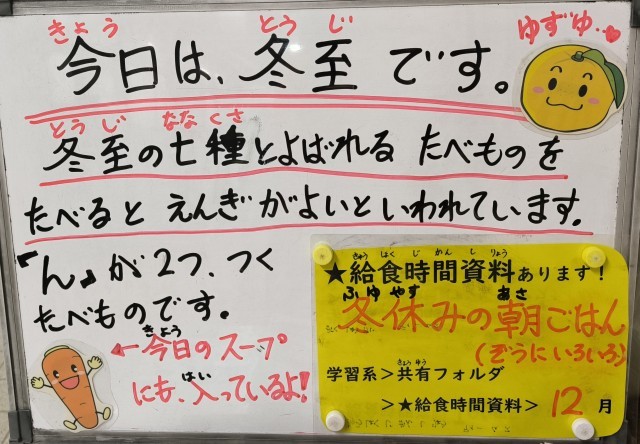 きょう とうじ
今日は、冬至です。
ゆずゆ‥
とうじ ななくさ
冬至の七種とよばれる たべものを
たべると えんぎがよいといわれています。
「ん」が2つ、つく
たべものです。
きょう
←今日のスープ
はい
にも、入っているよ!
きゅうしょくじかんしりょう
★給食時間資料あります!
ふゆやす あさ
冬休みの朝ごはん
(ぞうにいろいろ)
きょうゆう
学習系>共有フォルダ
>★給食時間資料> 12月